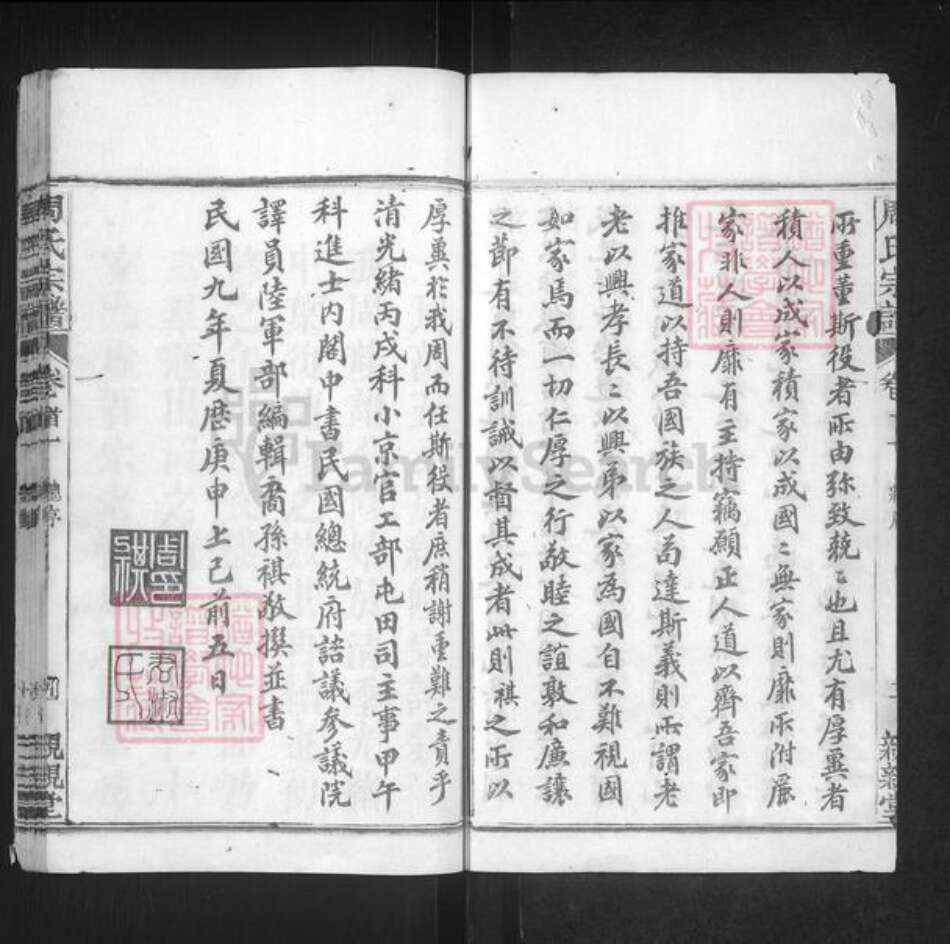 所重董斯役者所由弥致兢〻也且尤有厚冀者
積人以成家積家以成國〻無家則靡所附麗
家非人則靡有主持竊願正人道以齊吾家即
推家道以持吾國族之人苟達斯義則所謂老
老以興孝長〻以興弟以家為國自不難視國
如家焉而一切仁厚之行敬睦之誼敦和廉讓
之節有不待訓誡以督其成者此則祺之所以
厚冀於我周而任斯役者庶稍謝重難之責乎
清光緒丙戌科小京官工部屯田司主事甲午
科進士内閣中書民國總統府諮議參議院
譯員陸軍部編輯裔孫祺敬撰並書
民國九年夏曆庚申上巳前五日
周氏宗譜
卷首一
總序
親親堂
FamilySearch